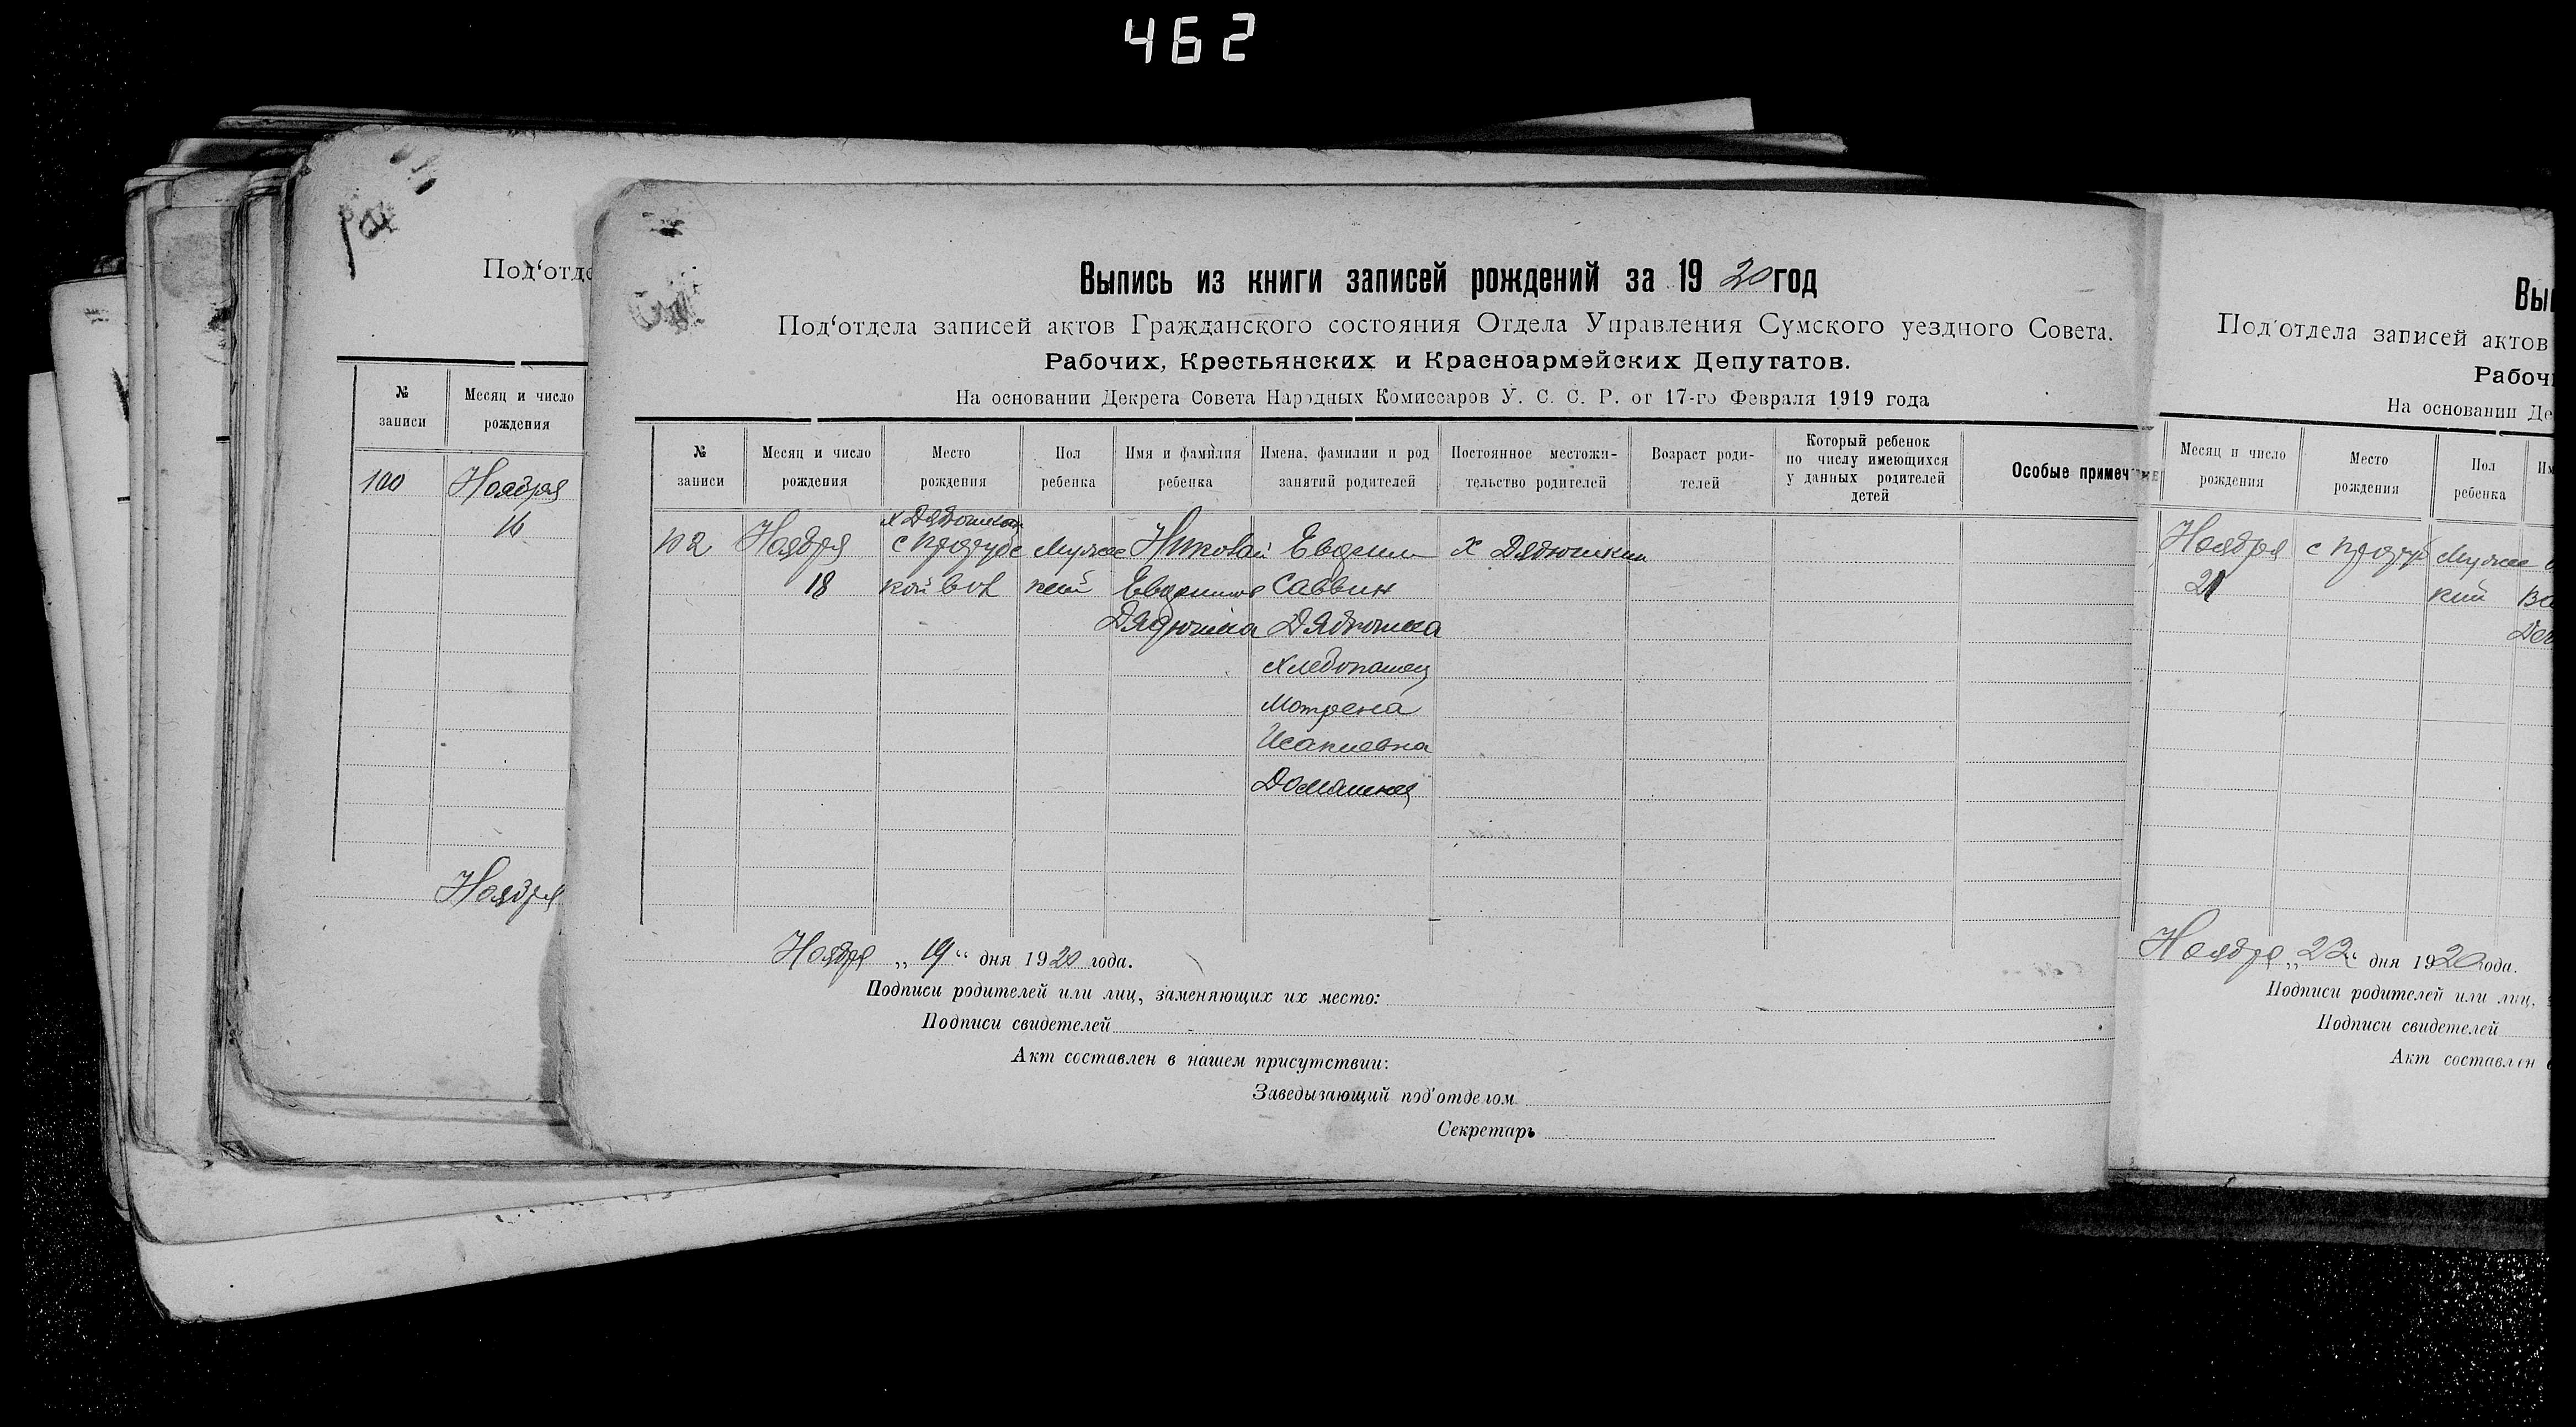 462
Под‘отде
№ записи
Месяц и число рождения
100
Ноября
16
Ноября
Выпись из книги записей рождений за 1920 год
Под‘отдела записей актов Гражданского состояния Отдела Управления Сумского уездного Совета.
Рабочих, Крестьянских и Красноармейских Депутатов.
На основании Декрета Совета Народных Комиссаров У. С. С. Р. от 17-го Февраля 1919 года
№ записи
Месяц и число рождения
Место рождения
Пол ребенка
Имя и фамилия ребенка
Имена, фамилии и род занятий родителей
Постоянное местожи-тельство родителей
Возраст роди-телей
Который ребенок по числу имеющихся у данных родителей детей
Особые примеч
102
Ноября
18
кой вол
Мужс
кий
Николай
Дядюшка
Евдоким
Саввин
Дядюшка
Хлебопашец
Мотрена
Исакиевна
Домашняя
х Дядюшкин
Ноября „19“ дня 1920 года.
Подписи родителей или лиц, заменяющих их место:
Подписи свидетелей
Акт составлен в нашем присутствии:
Заведызающий под‘отделом
Секретарь
Вы
Под‘отдела записей актов
Рабоч
На основании Де
Месяц и число рождения
Место рождения
Пол ребенка
Им
Ноября
21
Мужс
кий
Ноября „22“ дня 1920 года.
Подписи родителей или лиц,
Подписи свидетелей
Акт составлен